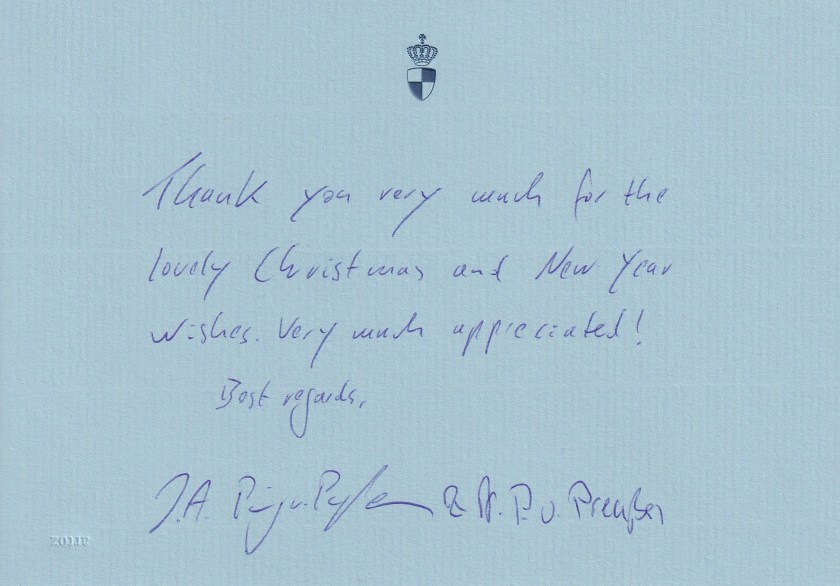 Thank you very much for the
lovely Christmas and New Year
wishes. Very much appreciated!
Best regards,
J.A. & P. v. Preußen